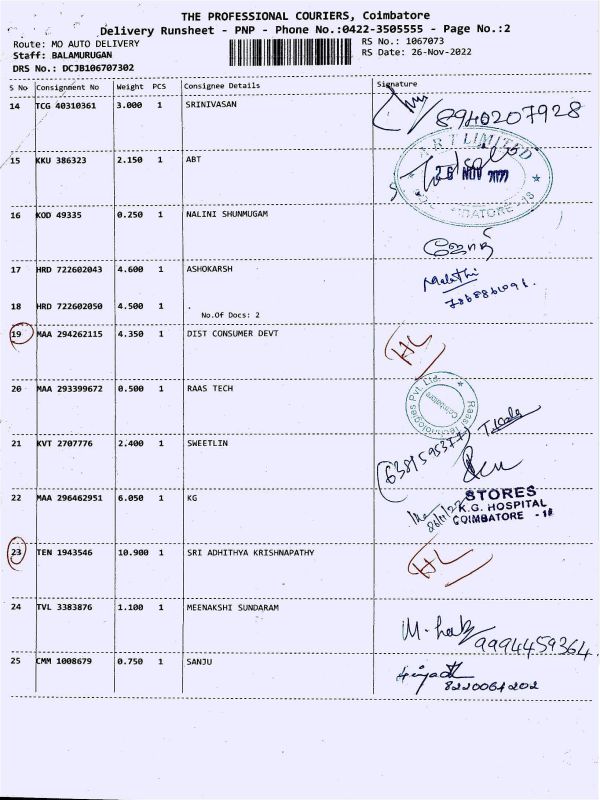 THE PROFESSIONAL COURIERS, Coimbatore
Delivery Runsheet - PNP - Phone No.:0422-3505555 - Page No.:2
Route: MO AUTO DELIVERY
RS No.: 1067073
Staff: BALAMURUGAN
RS Date: 26-Nov-2022
DRS No.: DCJB106707302
S No Consignment No Weight PCS Consignee Details Signature
14 TCG 40310361 3.000 1 SRINIVASAN
8940207928
15 KKU 386323 2.150 1 ABT
LIMITED
26 NOV
16 KOD 49335 0.250 1 NALINI SHUNMUGAM
17 HRD 722602043 4.600 1 ASHOKARSH
Malathi
18 HRD 722602050 4.500 1
No.Of Docs: 2
19 MAA 294262115 4.350 1 DIST CONSUMER DEVT
HL
20 MAA 293399672 0.500 1 RAAS TECH
Technologies Pvt. Ltd.
Coimbatore
21 KVT 2707776 2.400 1 SWEETLIN
22 MAA 296462951 6.050 1 KG
STORES
K.G. HOSPITAL
COIMBATORE - 18
23 TEN 1943546 10.900 1 SRI ADHITHYA KRISHNAPATHY
HL
24 TVL 3383876 1.100 1 MEENAKSHI SUNDARAM
9994459364
25 CMM 1008679 0.750 1 SANJU
8220064202